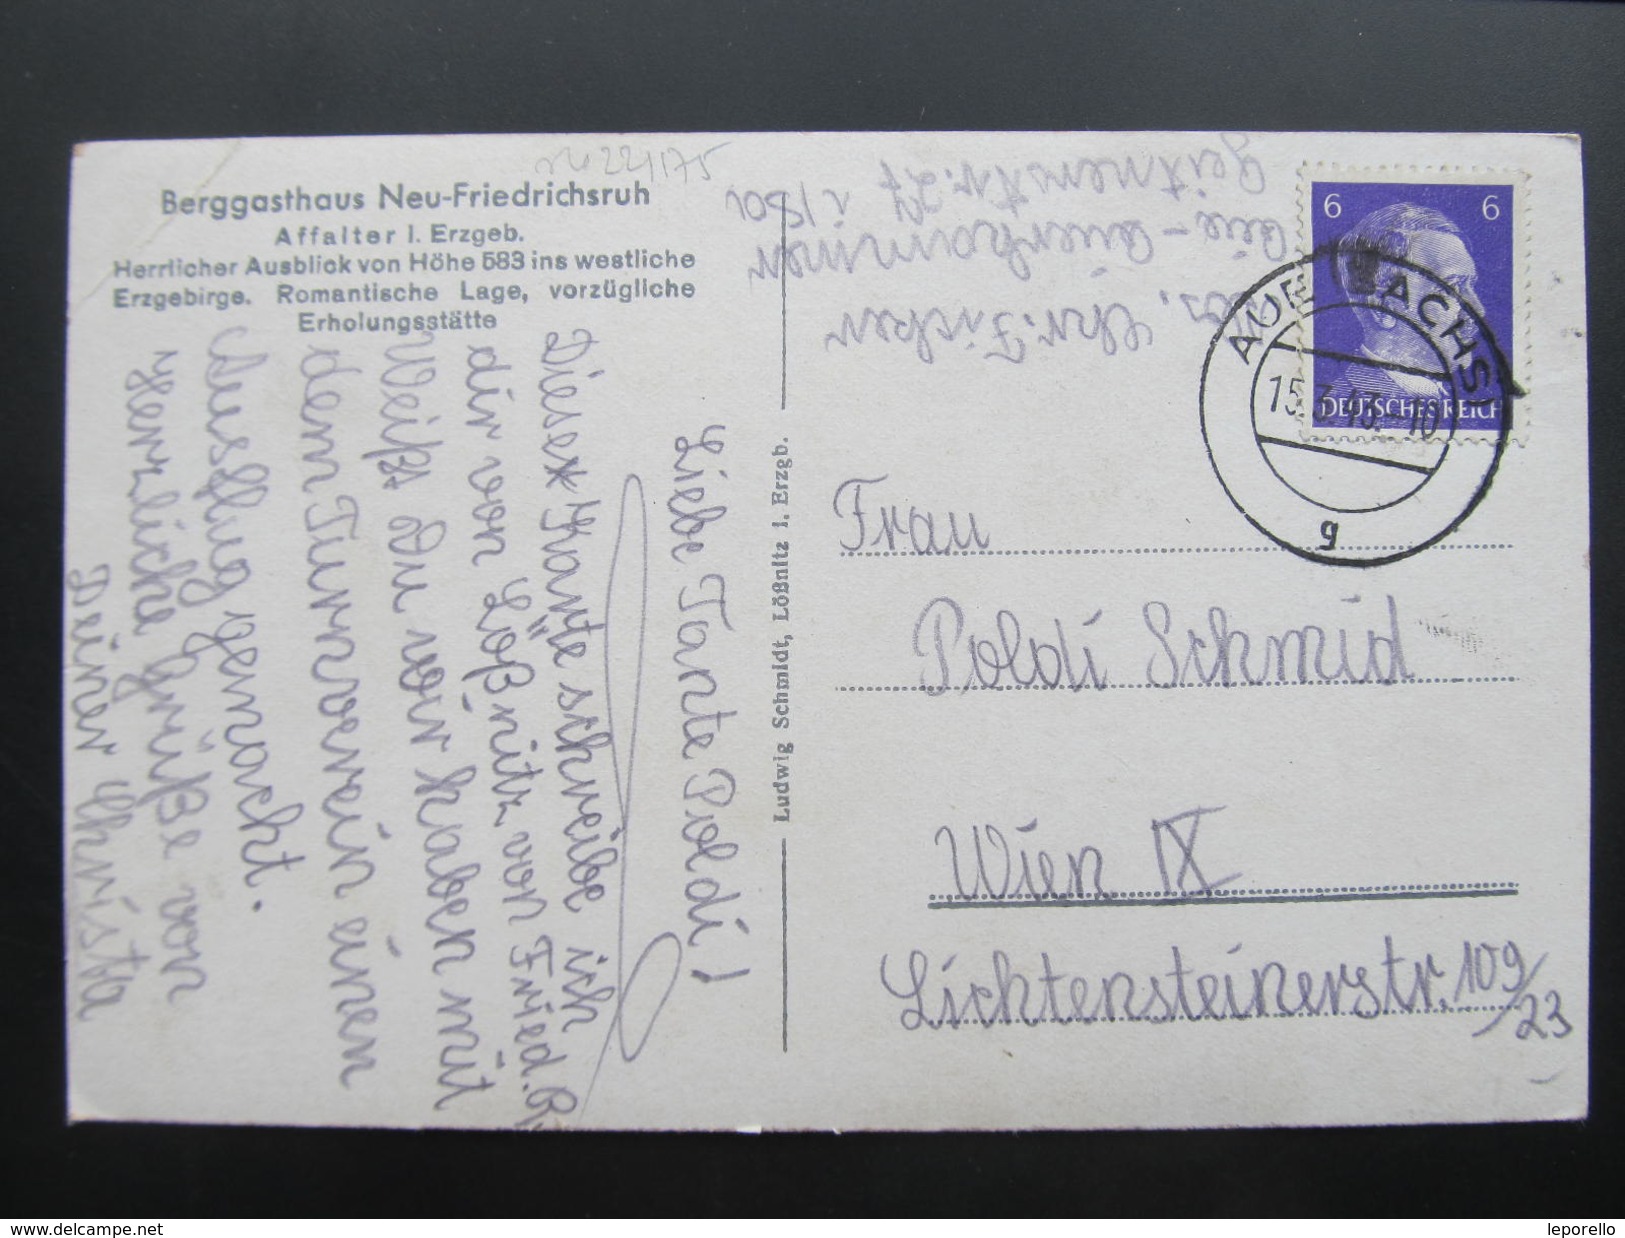 Berggasthaus Neu-Friedrichsruh
Affalter i. Erzgeb.
Herrlicher Ausblick von Höhe 583 ins westliche
Erzgebirge. Romantische Lage, vorzügliche
Erholungsstätte
Liebe Tante Poldi!
Diese Karte schreibe ich
dir von Lößnitz von Fried.R
Weißt Du wir haben mit
dem Turnverein einen
Ausflug gemacht.
Herzliche Grüße von
Deiner Christa
Ludwig Schmidt, Lößnitz i. Erzgb.
Chr. Ficker
Aue - Auerhammer
Geitnerstr. 27
6 6
DEUTSCHES REICH
AUE SACHS
15.3.43.-10
g
Frau
Poldi Schmid
Wien IX
Lichtensteinerstr. 109/23
www.delcampe.net
leporello